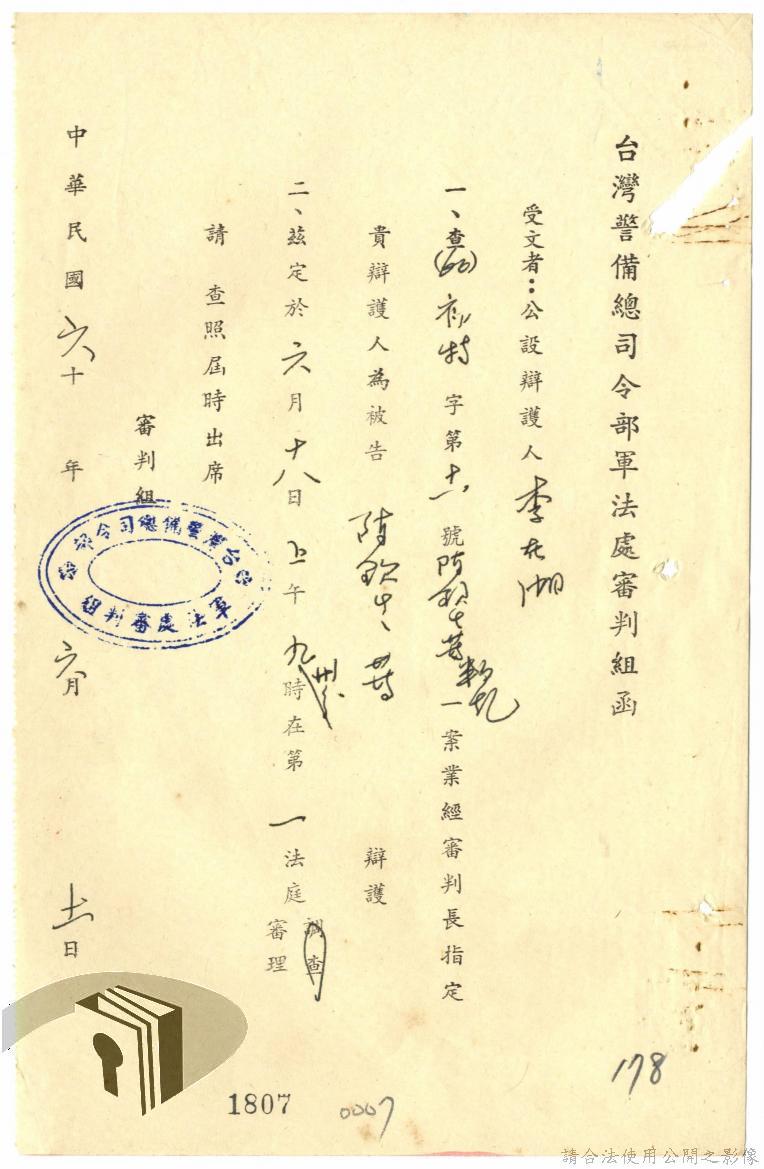 台灣警備總司令部軍法處審判組函
受文者：公設辯護人李在湖
一、查(60)初特字第十一號陳欽生等叛亂一案業經審判長指定
貴辯護人為被告陳欽生等辯護
二、茲定於六月十八日上午九時卅分在第一法庭調查審理
請查照屆時出席
審判組
台灣警備總司令部
軍法處審判組
中華民國六十年六月十一日
178
1807
0007
請合法使用公開之影像